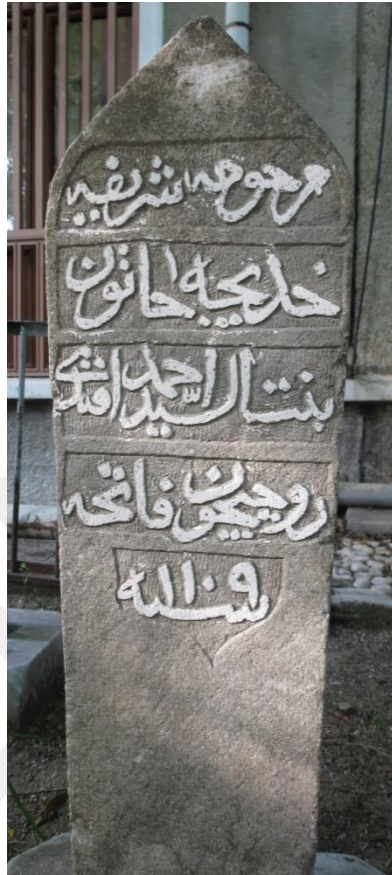 مرحومه شريفه
خديجه خاتون
بنت السيد احمد افندى
روحيچون فاتحه
سنه ١١٠٩